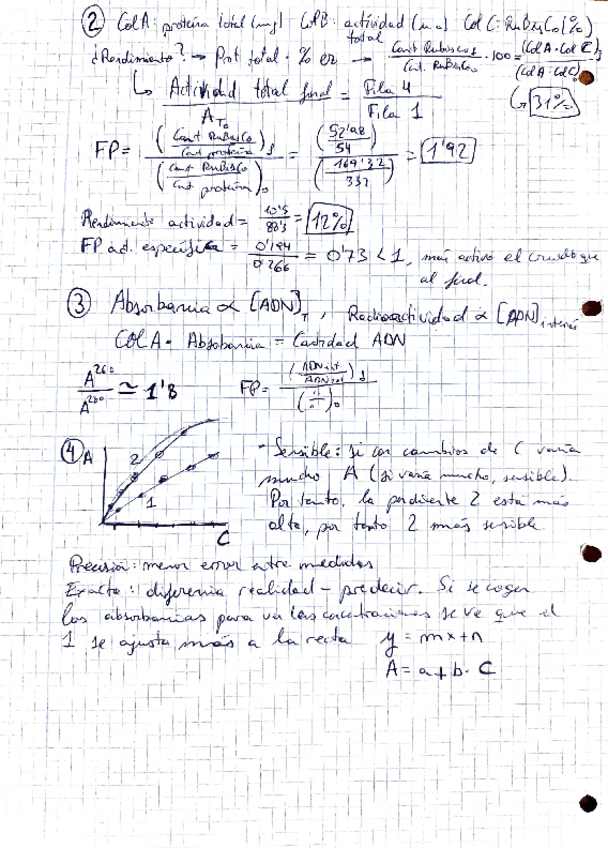 ② Col A: proteína total (mg) Col B: actividad total (m.a) Col C: RuBisCo (%)
¿Rendimiento? → Prot total · % en → Cant Rubisco f / Cant. RuBisCo · 100 = (Col A · Col C)f / (Col A · Col C)
↳ Actividad total final / A T0 = Fila 4 / Fila 1 ↳ 31%
FP = (Cant RuBisCo / Cant proteína)f / (Cant RuBisCo / Cant proteína)0 = (52'92 / 54) / (169'32 / 332) = 1'92
Rendimiento actividad = 10'5 / 88'3 = 12%
FP ad. específica = 0'194 / 0'266 = 0'73 < 1, más activo el crudo que
al final.
③ Absorbancia ∝ [ADN]T , Radioactividad ∝ [ADN]interés
Col A · Absorbancia = Cantidad ADN
A260 / A280 ≃ 1'8 FP = (ADN int / ADN tot)f / (" / ")0
④ A 2 1 C
- Sensible: si con cambios de C varía
mucho A (si varía mucho, sensible).
Por tanto, la pendiente 2 está más
alta, por tanto 2 más sensible
Precisión: menor error entre medidas
Exacto: diferencia realidad - predecir. Si se cogen
las absorbancias para ver las concentraciones se ve que el
1 se ajusta más a la recta y = mx+n
A = a + b · C